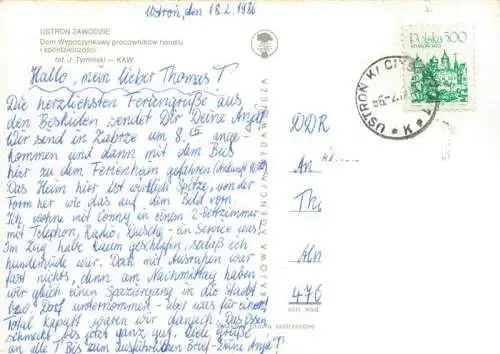 Ustroń, dnia 18.2.1986
USTROŃ ZAWODZIE
Dom Wypoczynkowy pracowników handlu
i spółdzielczości
fot. J. Tymiński — KAW
Hallo, mein lieber Thomas T.
Die herzlichsten Feriengrüße aus
den Beskiden sendet Dir Deine Anja!
Wir send in Zabrze um 8.15 ange-
kommen und dann mit dem Bus
hier zu dem Ferienheim gefahren
Das Heim hier ist wirklich Spitze, von der
Form her wie das auf dem Bild vorn.
Ich wohne mit Conny in einem 2-Bettzimmer
mit Telephon, Radio, Dusche - ein Service was!
Im Zug habe kaum geschlafen, sodaß ich
hundemüde war. Doch mit Ausruhen war
fast nichts, denn am Nachmittag haben
wir gleich einen Spaziergang in die Stadt
bzw. Dorf unternommen - aber was für einen!
Total kaputt waren wir danach. Das Essen
schmeckt bis jetzt ganz gut. Viele Grüße
an alle T. Bis zum ausführlichen Brief - Deine Anja T!
KRAJOWA AGENCJA WYDAWNICZA
Polska 500
USTROŃ K/CIESZ
DDR
An
Th
Aln
476